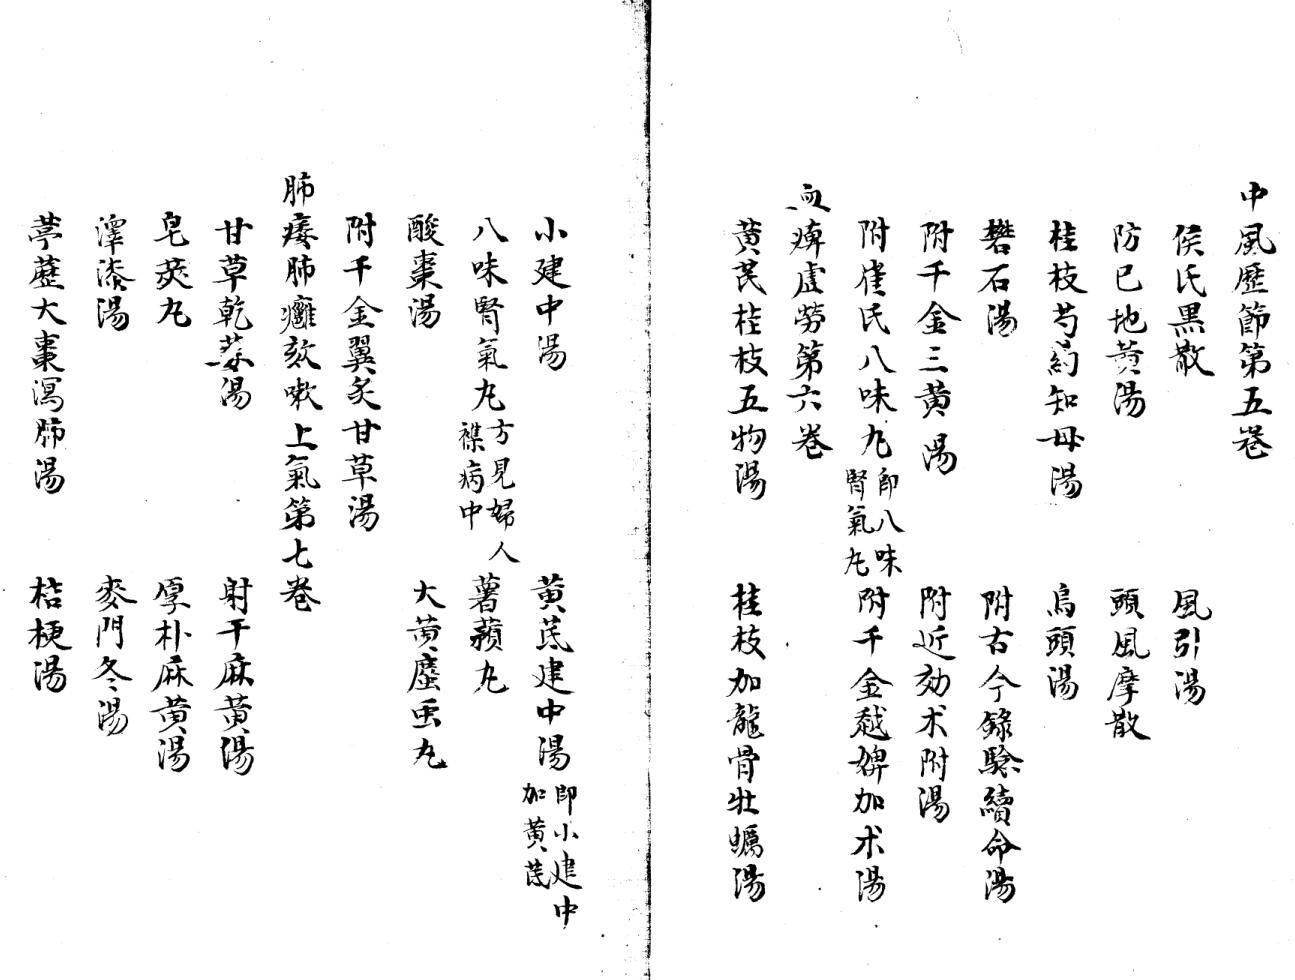 中風歷節第五卷
侯氏黒散　風引湯
防已地黄湯　頭風摩散
桂枝芍药知母湯　烏頭湯
礬石湯　附古今錄驗續命湯
附千金三黄湯　附近効术附湯
附崔氏八味丸即八味腎氣丸　附千金越婢加术湯
血痺虛勞第六卷
黄芪桂枝五物湯　桂枝加龍骨牡蠣湯
小建中湯　黄芪建中湯即小建中加黄芪
八味腎氣丸方見婦人襍病中　薯蕷丸
酸棗湯　大黄䗪虫丸
附千金翼炙甘草湯
肺痿肺癰欬嗽上氣第七卷
甘草乾姜湯　射干麻黄湯
皂莢丸　厚朴麻黄湯
澤漆湯　麥門冬湯
葶藶大棗瀉肺湯　桔梗湯